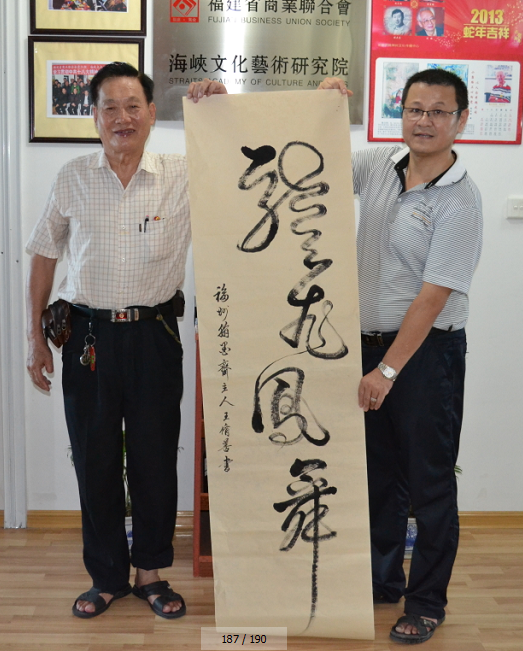 福建省商業聯合會
BUSINESS UNION SOCIETY
海峽文化藝術研究院
ACADEMY OF CULTURE AND
2013
蛇年吉祥
龍飛鳳舞
福州翰墨齋主人王善書
187 / 190